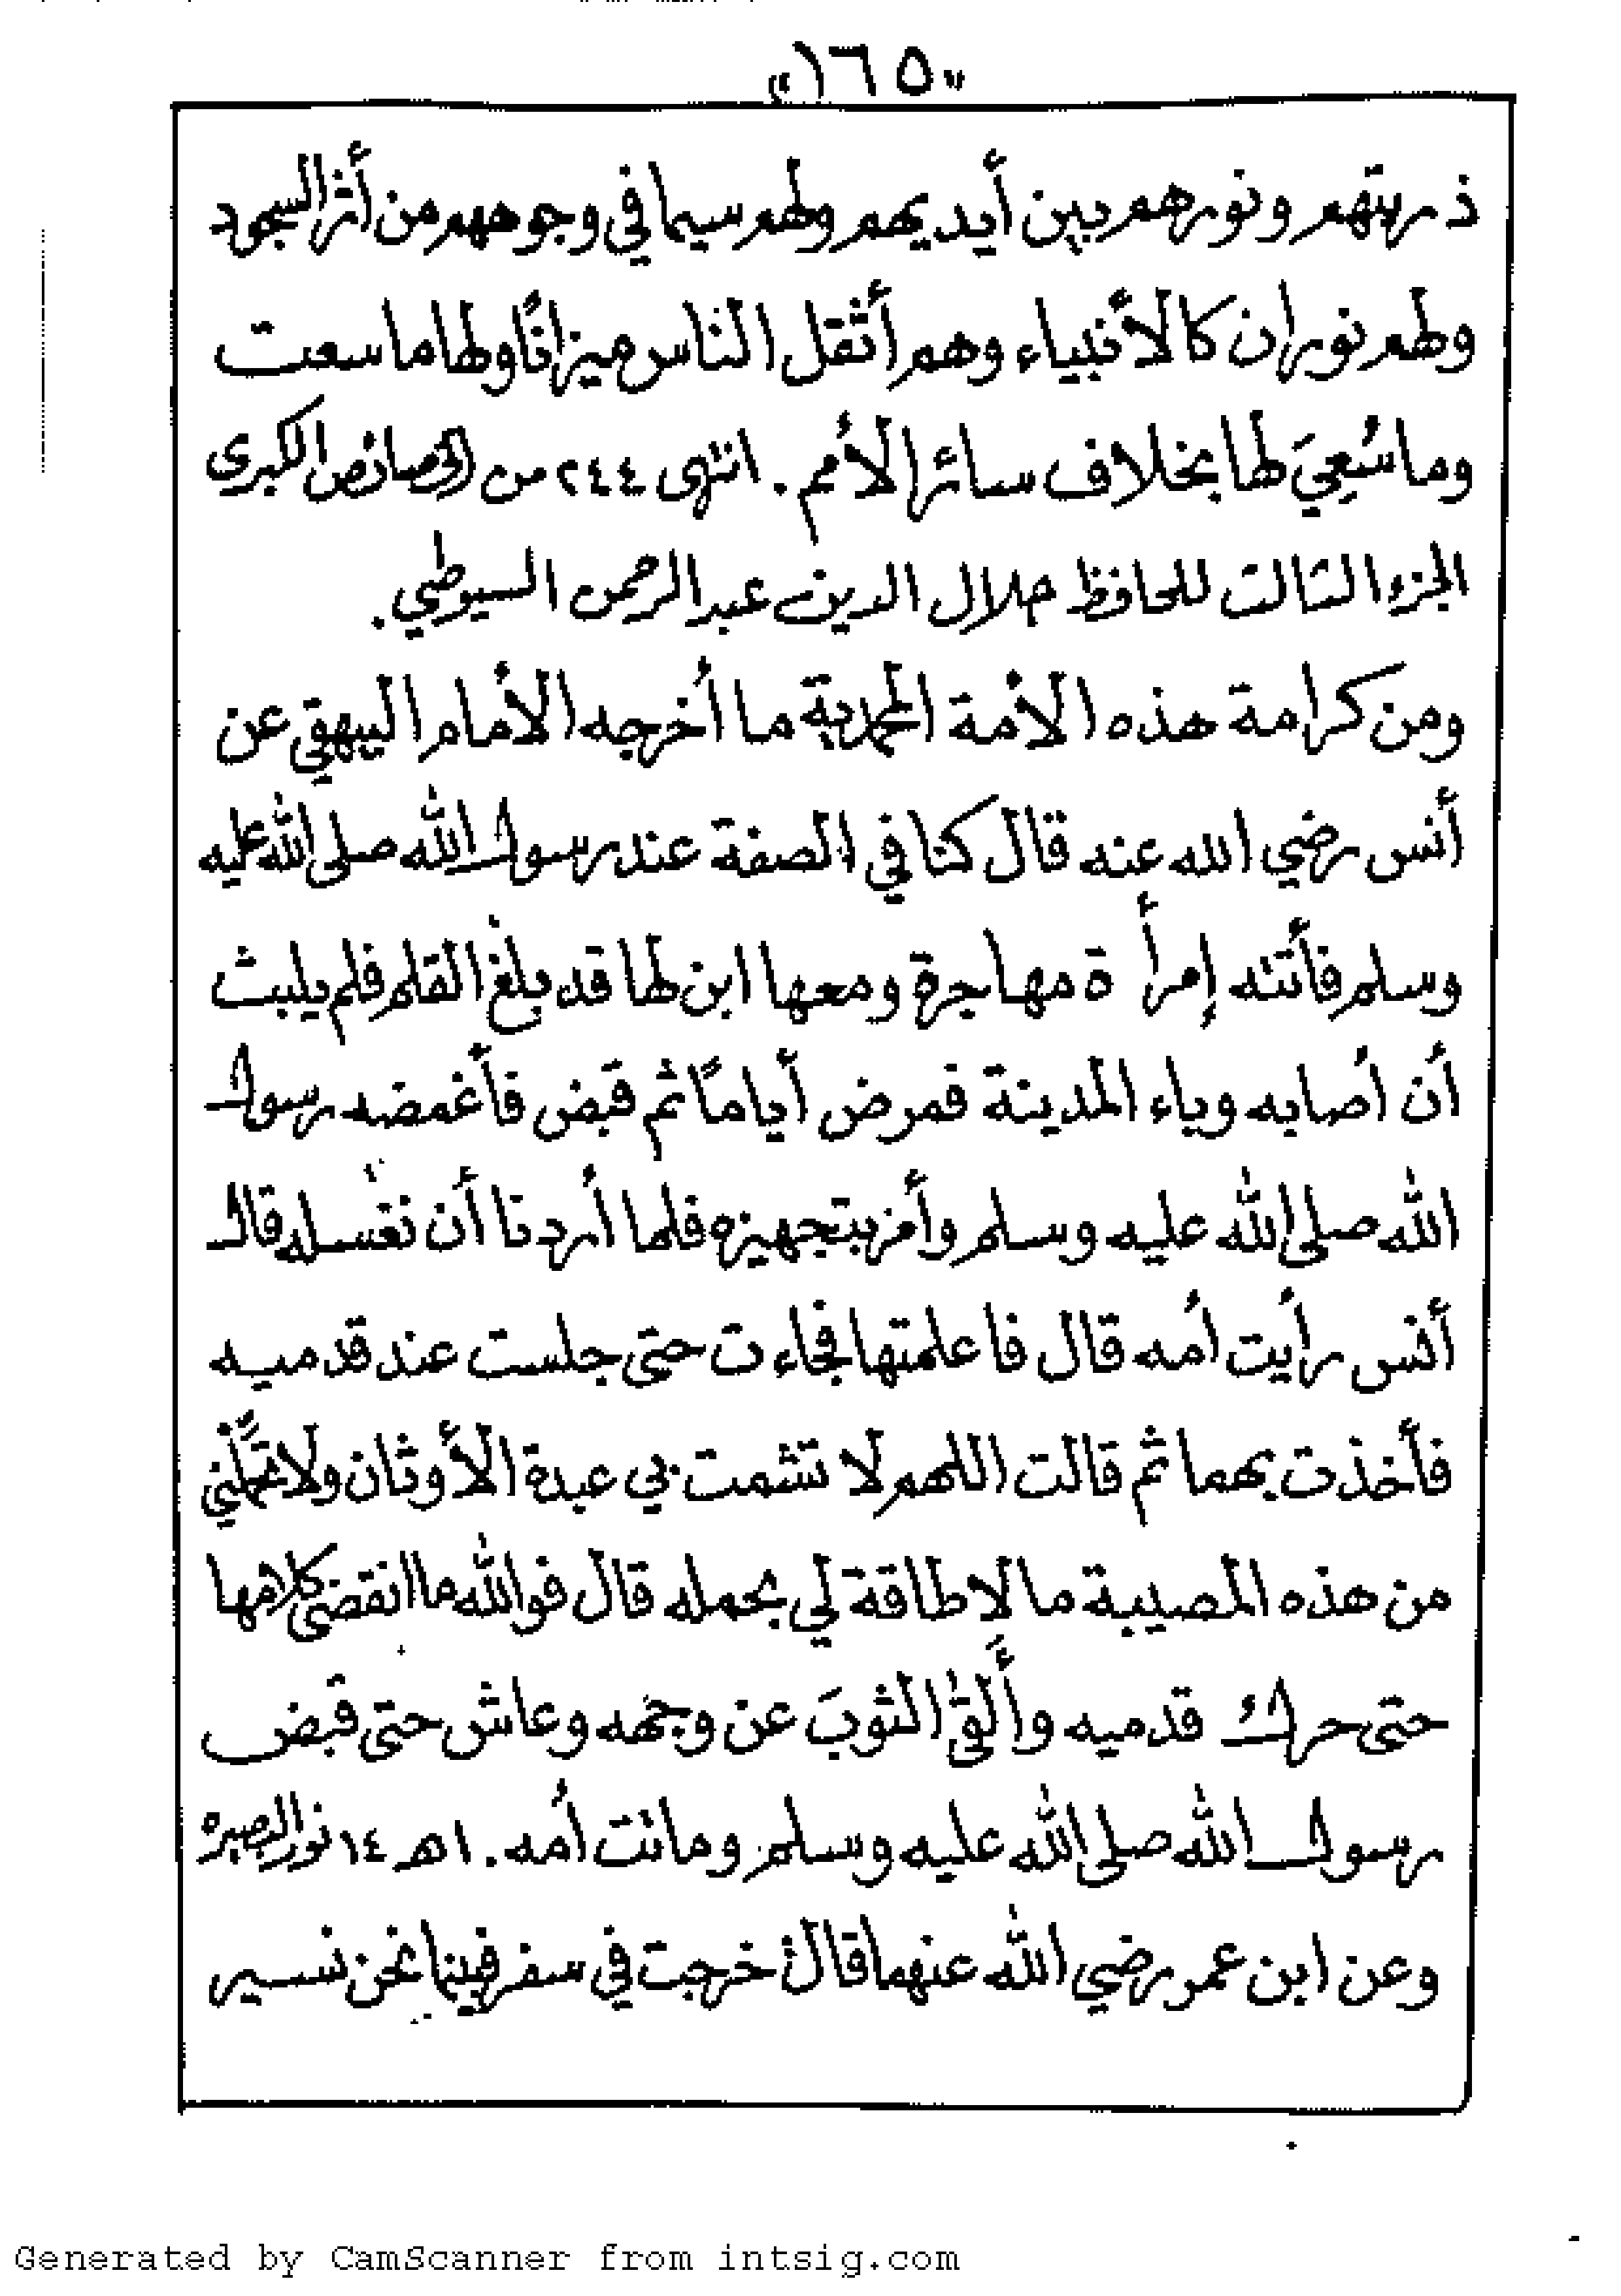 «١٦٥»
ذريتهم ونورهم بين أيديهم ولهم سيما في وجوههم من أثر السجود
ولهم نوران كالأنبياء وهم أثقل الناس ميزانًا ولها ما سعت
وما سُعِيَ لها بخلاف سائر الأمم . انتهى ٢٤٤ من الخصائص الكبرى
الجزء الثالث للحافظ جلال الدين عبد الرحمن السيوطي .
ومن كرامة هذه الأمة المحمدية ما أخرجه الأمام البيهقي عن
أنس رضي الله عنه قال كنا في الصفة عند رسول الله صلى الله عليه
وسلم فأتته إمرأة مهاجرة ومعها ابن لها قد بلغ القلم فلم يلبث
أن أصابه وباء المدينة فمرض أيامًا ثم قبض فأغمضه رسول
الله صلى الله عليه وسلم وأمر بتجهيزه فلما أردنا أن نغسله قال
أنس رأيت أمه قال فاعلمتها فجاءت حتى جلست عند قدميه
فأخذت بهما ثم قالت اللهم لا تشمت بي عبدة الأوثان ولا تحمّلني
من هذه المصيبة ما لا طاقة لي بحمله قال فوالله ما انقضى كلامها
حتى حرك قدميه وألقى الثوبَ عن وجهه وعاش حتى قبض
رسول الله صلى الله عليه وسلم وماتت أمه . اهـ ١٤ نور البصر
وعن ابن عمر رضي الله عنهما قال خرجت في سفر فبينما نحن نسير
Generated by CamScanner from intsig.com